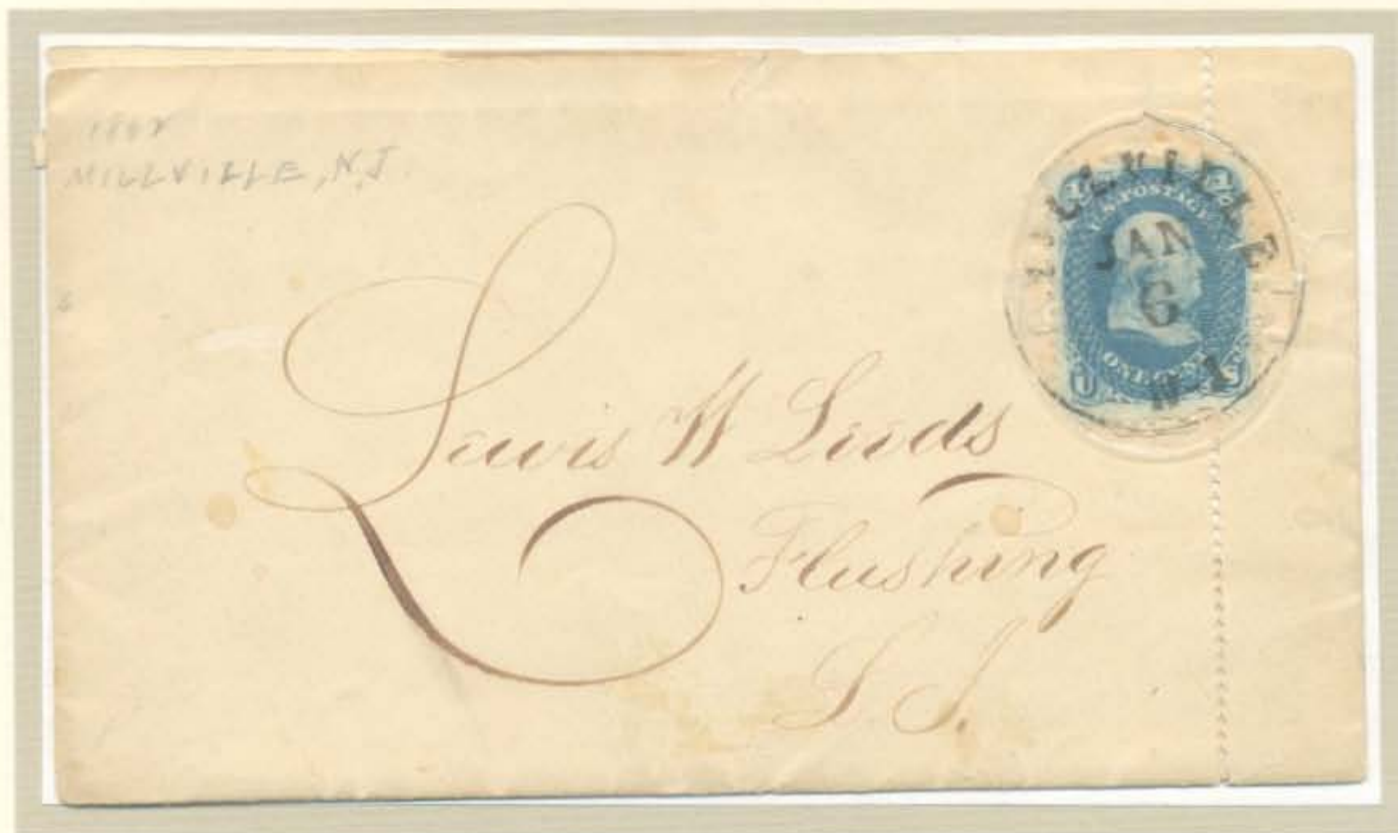 MILLVILLE, N.J.
MILLVILLE
JAN
6
N.J
U.S. POSTAGE
ONE CENT
U S
Lewis W Leeds
Flushing
L I.